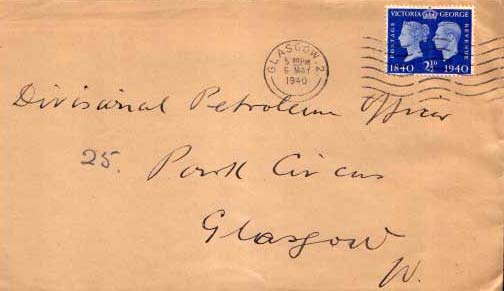 VICTORIA GEORGE
POSTAGE REVENUE
1840 2½D 1940
GLASGOW. 2
PM
6 MAY
1940
Divisional Petroleum Officer
25. Park Circus
Glasgow
W.